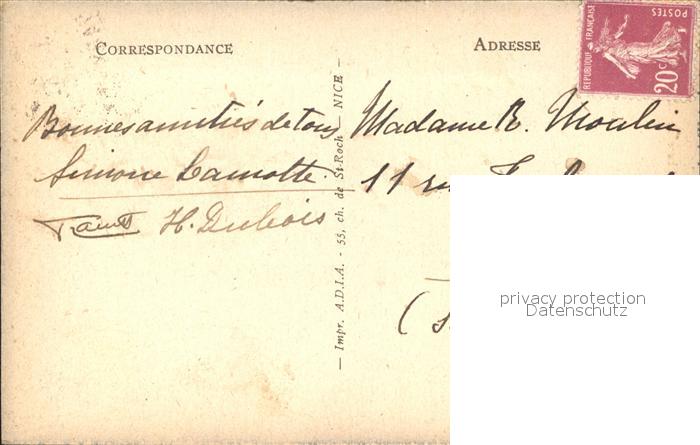 CORRESPONDANCE
ADRESSE
REPUBLIQUE FRANÇAISE
POSTES
20c
Bonnes amitiés de tous
Simone Lamotte.
H. Dubois
— Impr. A.D.I.A. - 55, ch. de St-Roch - NICE —
Madame R. Moulin
11 ru
(S
privacy protection
Datenschutz